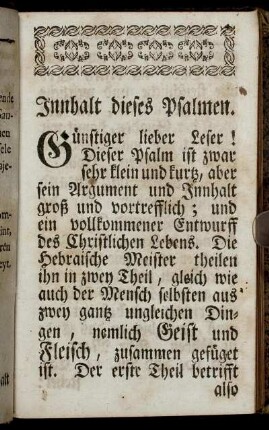 Innhalt dieses Psalmen.
Günstiger lieber Leser!
Dieser Psalm ist zwar
sehr klein und kurtz, aber
sein Argument und Innhalt
groß und vortrefflich; und
ein vollkommener Entwurff
des Christlichen Lebens. Die
Hebraische Meister theilen
ihn in zwey Theil, gleich wie
auch der Mensch selbsten aus
zwey gantz ungleichen Din-
gen, nemlich Geist und
Fleisch, zusammen gefüget
ist. Der erste Theil betrifft
also